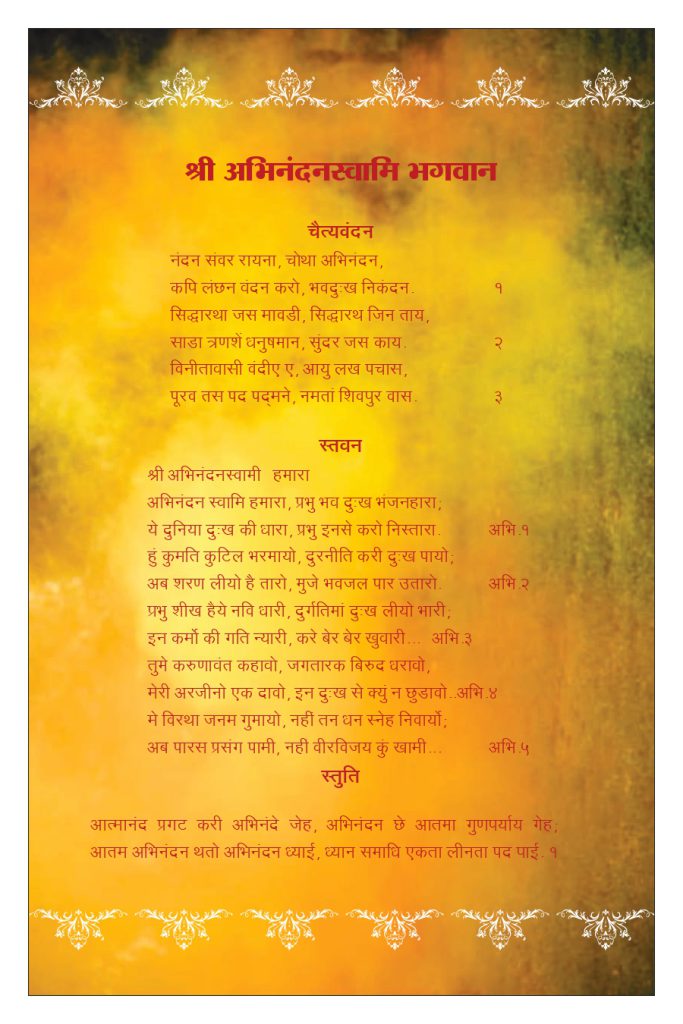 श्री अभिनंदनस्वामि भगवान
चैत्यवंदन
नंदन संवर रायना, चोथा अभिनंदन,
कपि लंछन वंदन करो, भवदुःख निकंदन. १
सिद्धारथा जस मावडी, सिद्धारथ जिन ताय,
साडा त्रणशें धनुषमान, सुंदर जस काय. २
विनीतावासी वंदीए ए, आयु लख पचास,
पूरव तस पद पद्मने, नमतां शिवपुर वास. ३
स्तवन
श्री अभिनंदनस्वामी हमारा
अभिनंदन स्वामि हमारा, प्रभु भव दुःख भंजनहारा;
ये दुनिया दुःख की धारा, प्रभु इनसे करो निस्तारा. अभि.१
हुं कुमति कुटिल भरमायो, दुरनीति करी दुःख पायो;
अब शरण लीयो है तारो, मुजे भवजल पार उतारो. अभि.२
प्रभु शीख हैये नवि धारी, दुर्गतिमां दुःख लीयो भारी;
इन कर्मो की गति न्यारी, करे बेर बेर खुवारी... अभि.३
तुमे करुणावंत कहावो, जगतारक बिरुद धरावो,
मेरी अरजीनो एक दावो, इन दुःख से क्युं न छुडावो..अभि.४
मे विरथा जनम गुमायो, नहीं तन धन स्नेह निवार्यो;
अब पारस प्रसंग पामी, नही वीरविजय कुं खामी... अभि.५
स्तुति
आत्मानंद प्रगट करी अभिनंदे जेह, अभिनंदन छे आतमा गुणपर्याय गेह;
आतम अभिनंदन थतो अभिनंदन ध्याई, ध्यान समावि एकता लीनता पद पाई. १